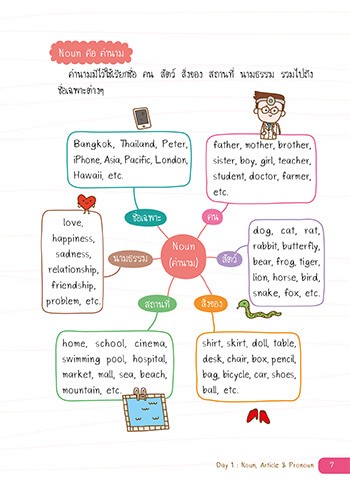 Noun คือ คำนาม
คำนามมีไว้ใช้เรียกชื่อ คน สัตว์ สิ่งของ สถานที่ นามธรรม รวมไปถึง
ชื่อเฉพาะต่างๆ
Bangkok, Thailand, Peter,
iPhone, Asia, Pacific, London,
Hawaii, etc.
father, mother, brother,
sister, boy, girl, teacher,
student, doctor, farmer,
etc.
ชื่อเฉพาะ
คน
love,
happiness,
sadness,
relationship,
friendship,
problem, etc.
นามธรรม
Noun
(คำนาม)
สัตว์
dog, cat, rat,
rabbit, butterfly,
bear, frog, tiger,
lion, horse, bird,
snake, fox, etc.
สถานที่
สิ่งของ
home, school, cinema,
swimming pool, hospital,
market, mall, sea, beach,
mountain, etc.
shirt, skirt, doll, table,
desk, chair, box, pencil,
bag, bicycle, car, shoes,
ball, etc.
Day 1 : Noun, Article & Pronoun 7